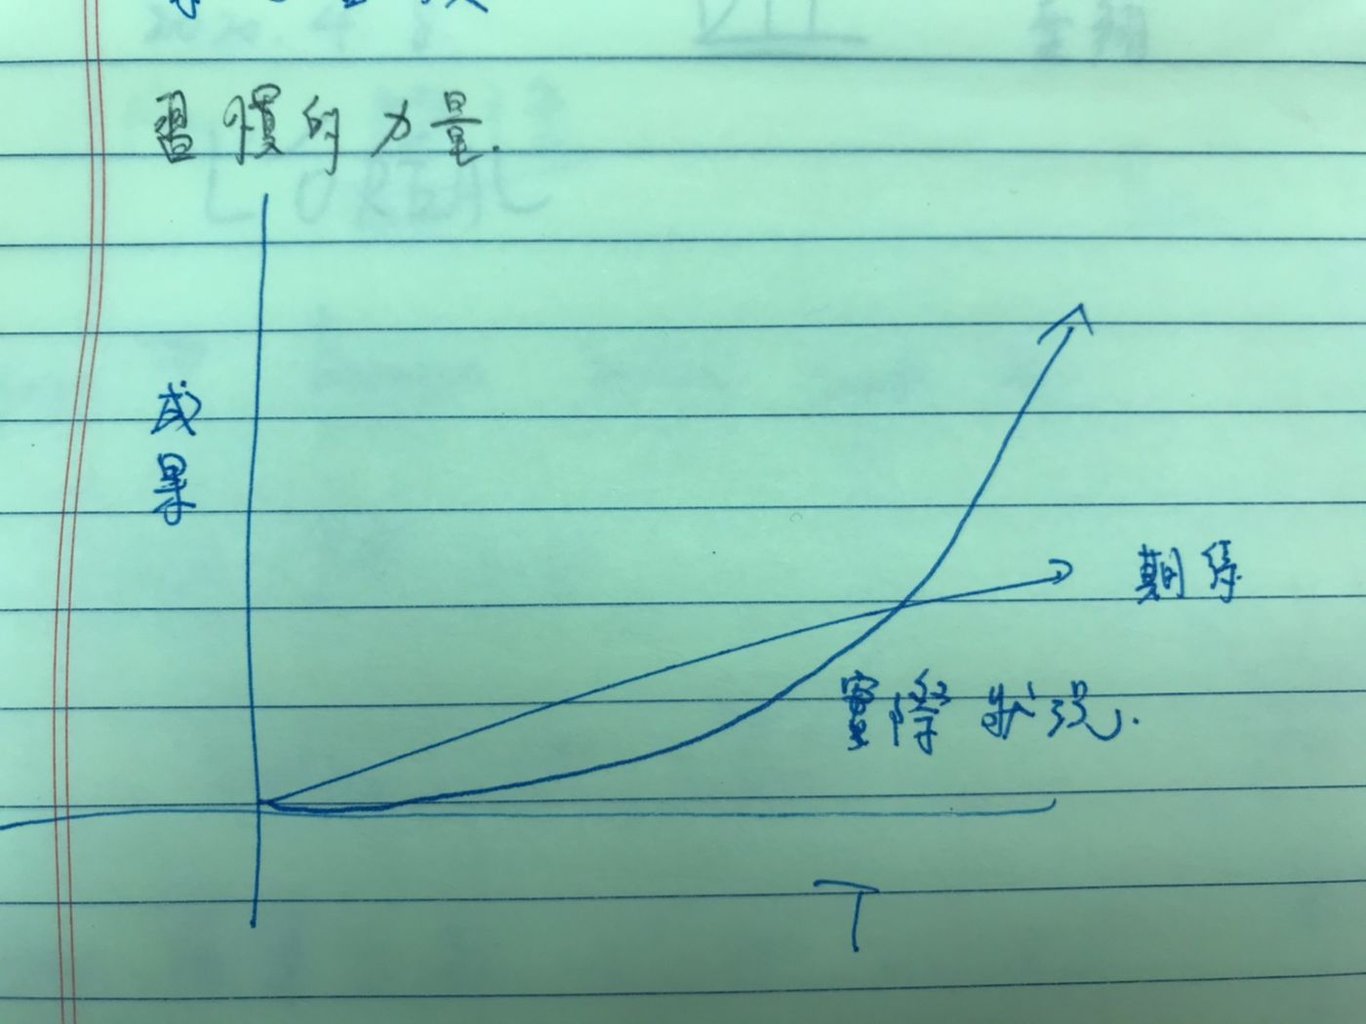 習慣的力量.
成果
期待
實際狀況.
T